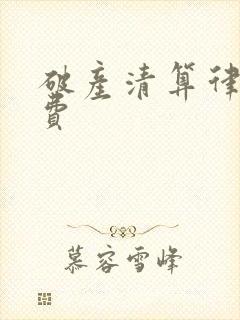 破产清算律
费
慕容雪峰